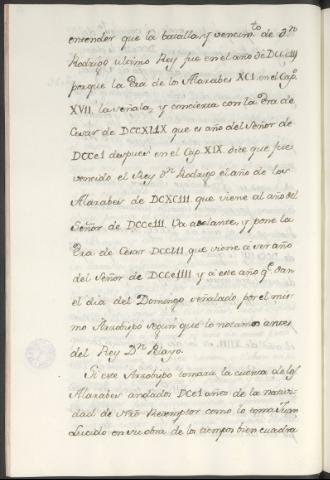 entender que la batalla, y vencim.to de D.n
Rodrigo ultimo Rey fue en el año de DCCeIII
porque la Era de los Alarabes XCI. en el Cap.
XVII. la señala, y concierta con la Era de
Cesar de DCCXLIX que es año del Señor de
DCCeI despues en el Cap. XIX. dice que fue
vencido el Rey D.n Rodrigo el año de los
Alarabes de DCXCIII. que viene al año del
Señor de DCCeIII. Va adelante, y pone la
Era de Cesar DCCLII que viene a ser año
del Señor de DCCeIIII y a este año q.e dan
el dia del Domingo señalado por el mis-
mo Arzobispo segun que lo notamos antes
del Rey D.n Pelayo.
Si este Arzobispo tomara la cuenta de los
Alarabes andados DCeI años de la nativi-
dad de Ntro Redemptor como lo toma Juan
Lucido en su obra de los tiempos bien cuadra